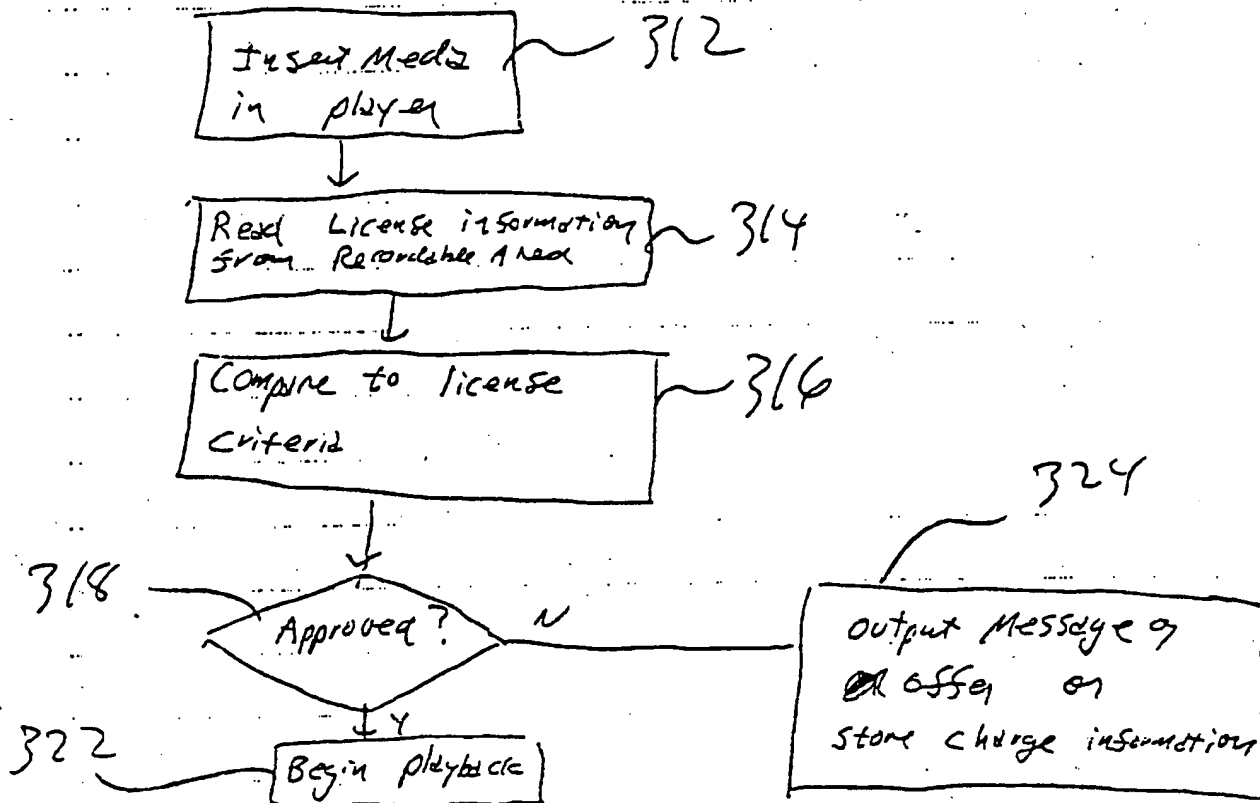 Insert Media
in player
312
Read License information
from Recordable Area
314
Compare to license
criteria
316
318
Approved?
N
Y
324
output Message or
offer or
store charge information
322
Begin playback